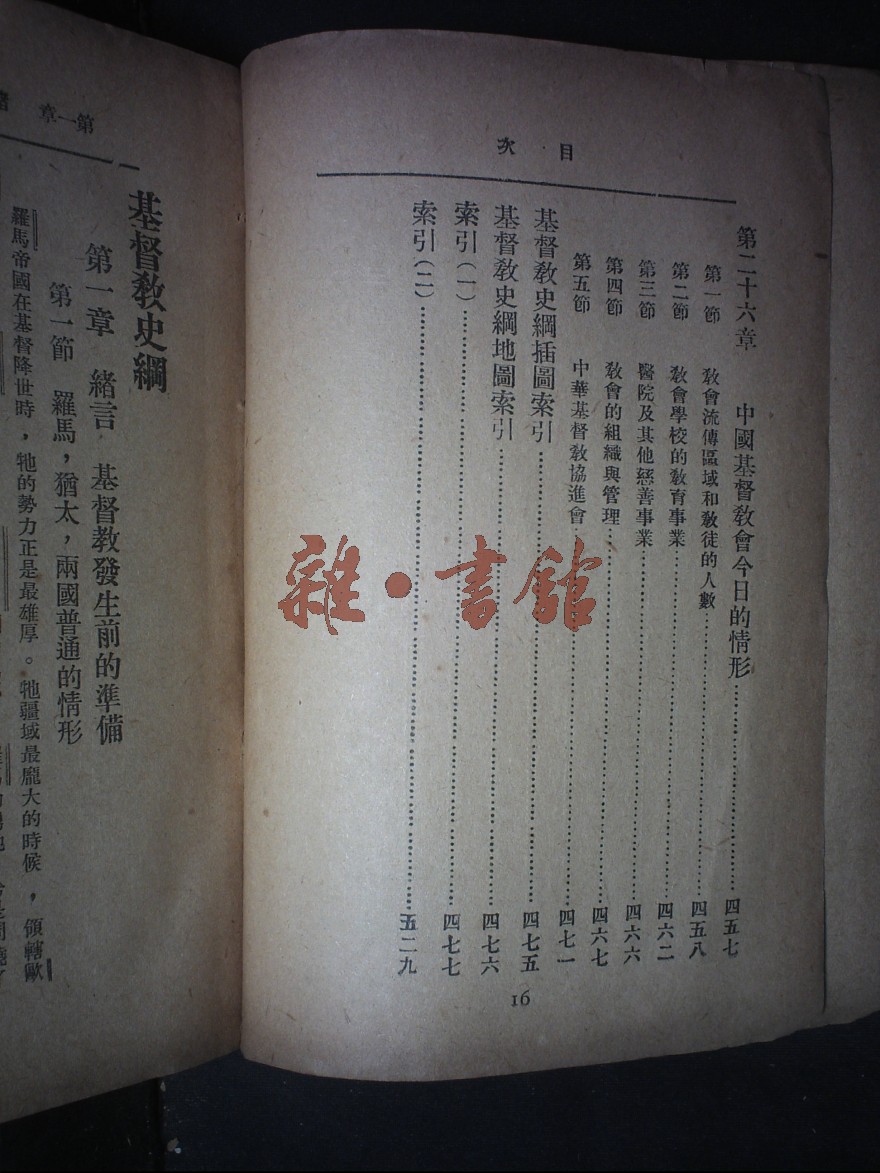 目次
第二十六章　中國基督教會今日的情形……四五七
第一節　教會流傳區域和教徒的人數……四五八
第二節　教會學校的教育事業……四六二
第三節　醫院及其他慈善事業……四六六
第四節　教會的組織與管理……四六七
第五節　中華基督教協進會……四七一
基督教史綱插圖索引……四七五
基督教史綱地圖索引……四七六
索引(一)……四七七
索引(二)……五二九
16
雜·書館
第一章
基督教史綱
第一章　緒言　基督教發生前的準備
第一節　羅馬，猶太，兩國普通的情形
羅馬帝國在基督降世時，牠的勢力正是最雄厚。牠疆域最龐大的時候，領轄歐